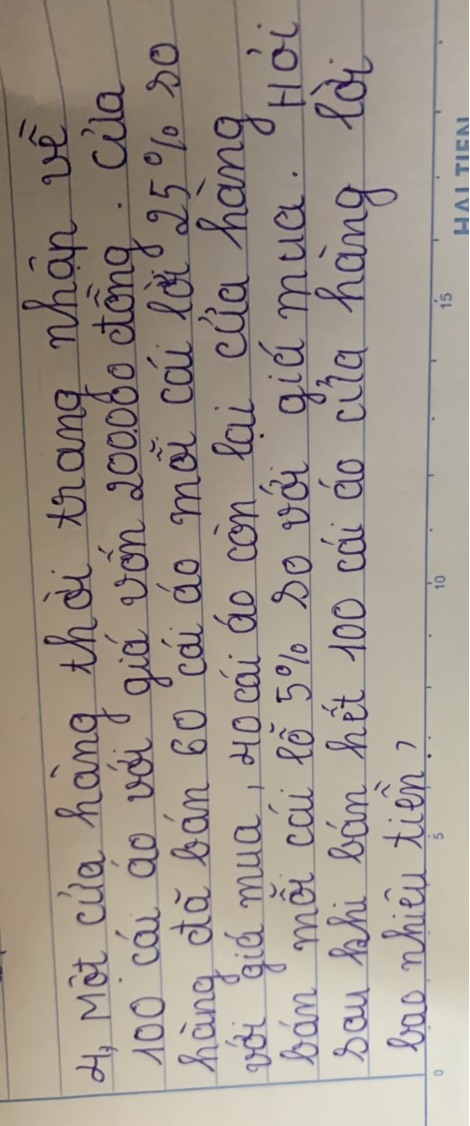 4, Một cửa hàng thời trang nhận về
100 cái áo với giá vốn 200000 đồng. Cửa
hàng đã bán 60 cái áo mỗi cái lời 25% so
với giá mua, 40 cái áo còn lại cửa hàng
bán mỗi cái lỗ 5% so với giá mua. Hỏi
sau khi bán hết 100 cái áo cửa hàng lời
bao nhiêu tiền,
0 5 10 15
HẢI TIẾN